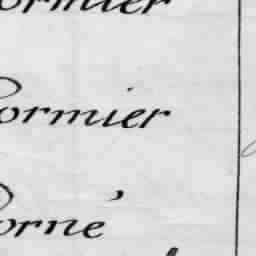 ormier
Cormier
Corné